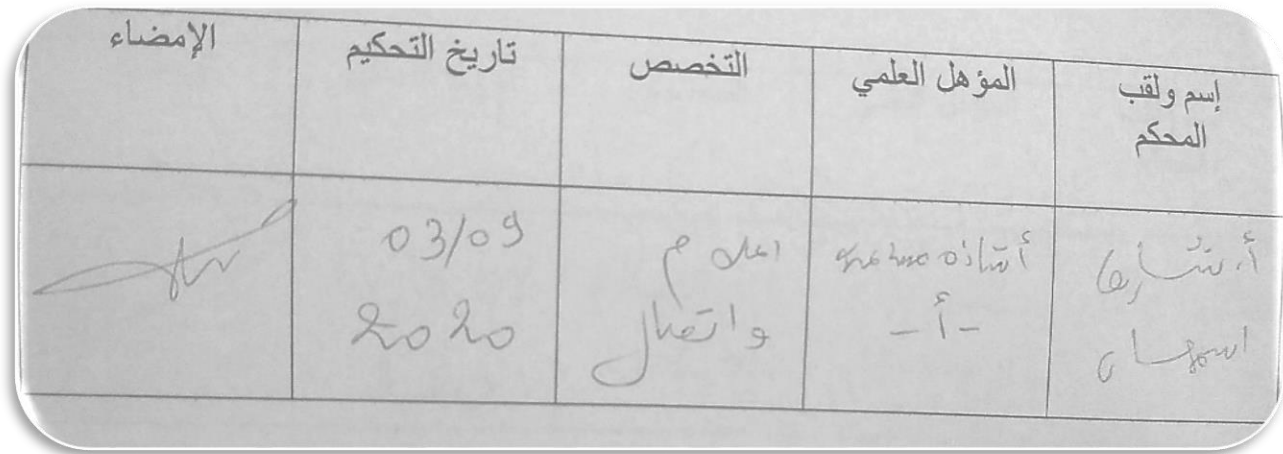 إسم ولقب
المحكم
المؤهل العلمي
التخصص
تاريخ التحكيم
الإمضاء
أ.
اسمهان
أستاذة مساعدة
- أ -
اعلام
واتصال
03/09
2020